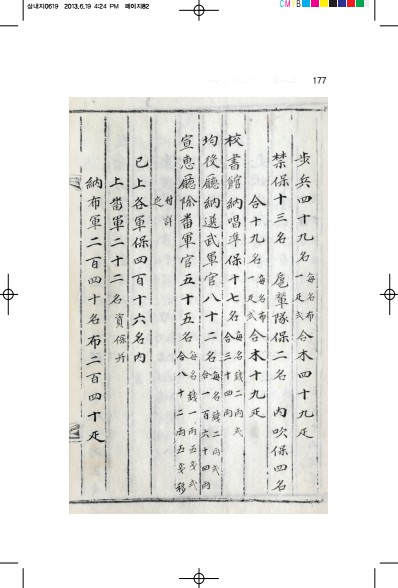 삼내지0619 2013.6.19 4:24 PM 페이지82
CM
177
步兵四十九名 每名布一疋式 合木四十九疋
禁保十三名 扈輦隊保二名 內吹保四名
合十九名 每名布一疋式 合木十九疋
校書館納唱準保十七名 每名錢二兩式 合三十四兩
均役廳納選武軍官八十二名 每名錢二兩式 合一百六十四兩
宣惠廳除番軍官五十五名 每名錢一兩五戔式 合八十二兩五戔移
付詳之
已上各軍保四百十六名內
上番軍二十二名 資保幷
納布軍二百四十名布二百四十疋